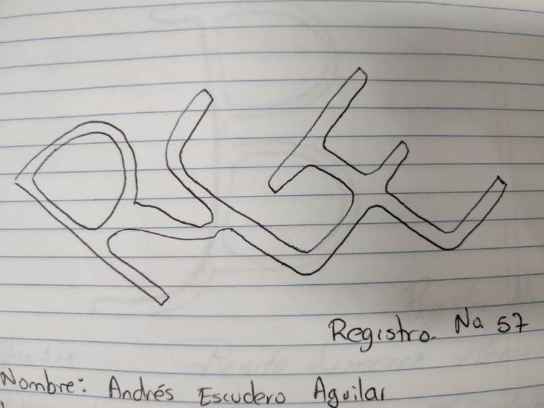 Registro. Na 57
Nombre: Andrés Escudero Aguilar